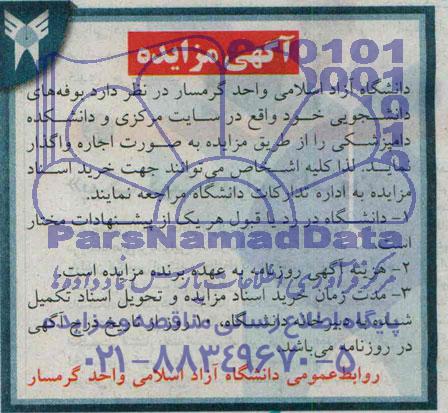 آگهی مزایده
دانشگاه آزاد اسلامی واحد گرمسار در نظر دارد بوفه‌های
دانشجویی خود واقع در سایت مرکزی و دانشکده
دامپزشکی را از طریق مزایده به صورت اجاره واگذار
نماید. لذا کلیه اشخاص می‌توانند جهت خرید اسناد
مزایده به اداره تدارکات دانشگاه مراجعه نمایند.
۱- دانشگاه در رد یا قبول هر یک از پیشنهادات مختار
است
ParsNamadData
۲- هزینه آگهی روزنامه به عهده برنده مزایده است.
۳- مدت زمان خرید اسناد مزایده و تحویل اسناد تکمیل
شده به دبیرخانه دانشگاه، ۱۰ روز از تاریخ درج آگهی
در روزنامه می‌باشد.
۰۲۱-۸۸۳۴۹۶۷۰-۵
روابط عمومی دانشگاه آزاد اسلامی واحد گرمسار